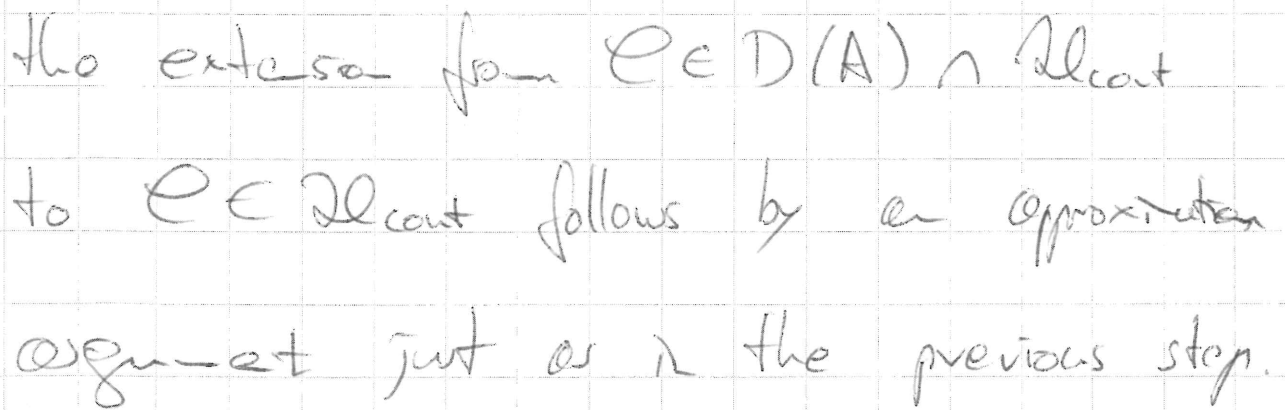 the extension from φ ∈ D(A) ∩ ℋcont
to φ ∈ ℋcont follows by an approximation
argument just as in the previous step.